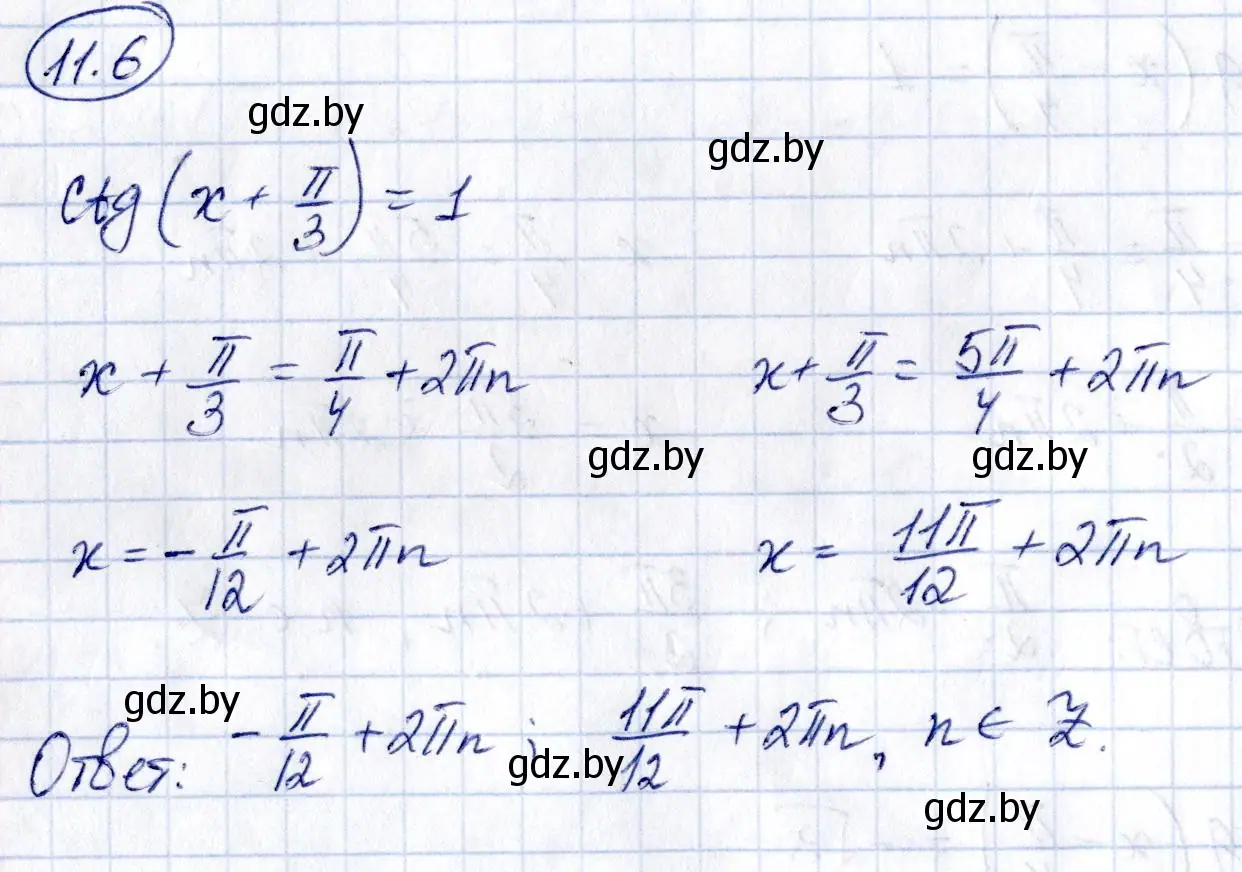 11.6
gdz.by
gdz.by
ctg(x + π/3) = 1
x + π/3 = π/4 + 2πn x + π/3 = 5π/4 + 2πn
gdz.by gdz.by
x = -π/12 + 2πn x = 11π/12 + 2πn
gdz.by
Ответ: -π/12 + 2πn; 11π/12 + 2πn, n ∈ Z.
gdz.by
gdz.by